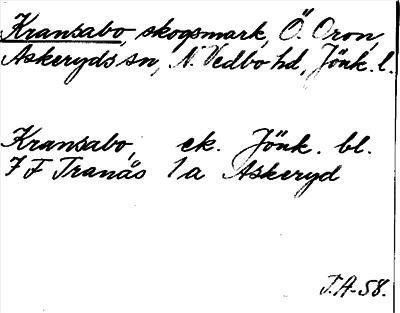 Kransabo, skogsmark, Ö. Oron,
Askeryds sn, N. Vedbo hd, Jönk. l.
Kransabo, ek. Jönk. bl.
7 F Tranås 1a Askeryd
T.A-58.